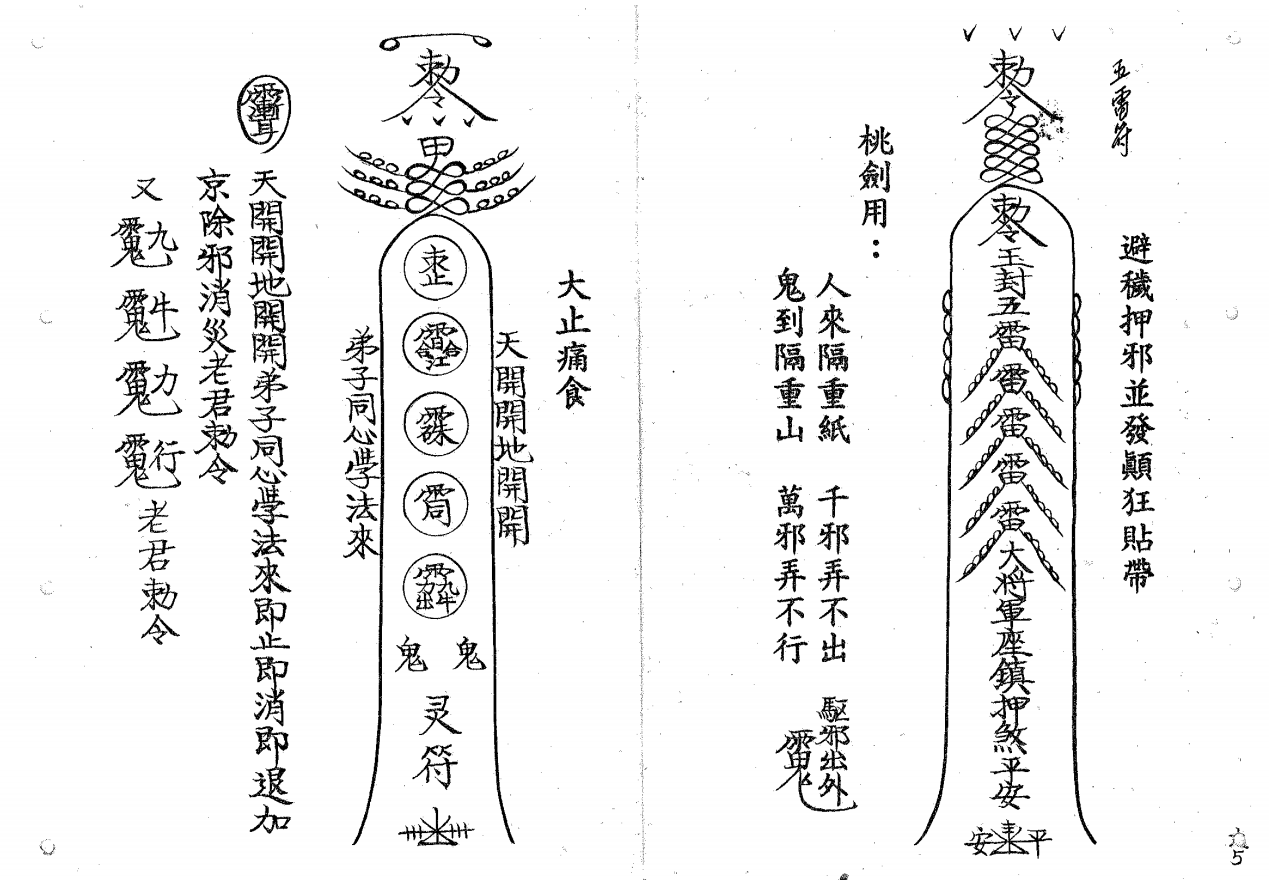 五雷符
避穢押邪並發顛狂貼帶
勅令
勅令玉封五雷雷雷雷雷大將軍座鎮押煞平安
安 平
桃劍用：
人來隔重紙　千邪弄不出　驅邪出外
鬼到隔重山　萬邪弄不行
5
大止痛食
勅令
甲
天開開地開開
弟子同心學法來
鬼 鬼
灵符
天開開地開開弟子同心學法來即止即消即退加
京除邪消災老君勅令
又
九
牛
力
行
老君勅令